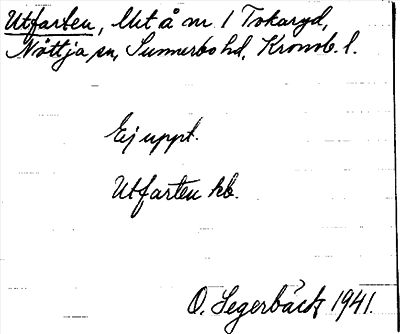 Utfarten, lht å nr 1 Tokaryd,
Nöttja sn, Sunnerbo hd, Kronob. l.
Ej uppt.
Utfarten kk.
O. Segerbäck 1941.